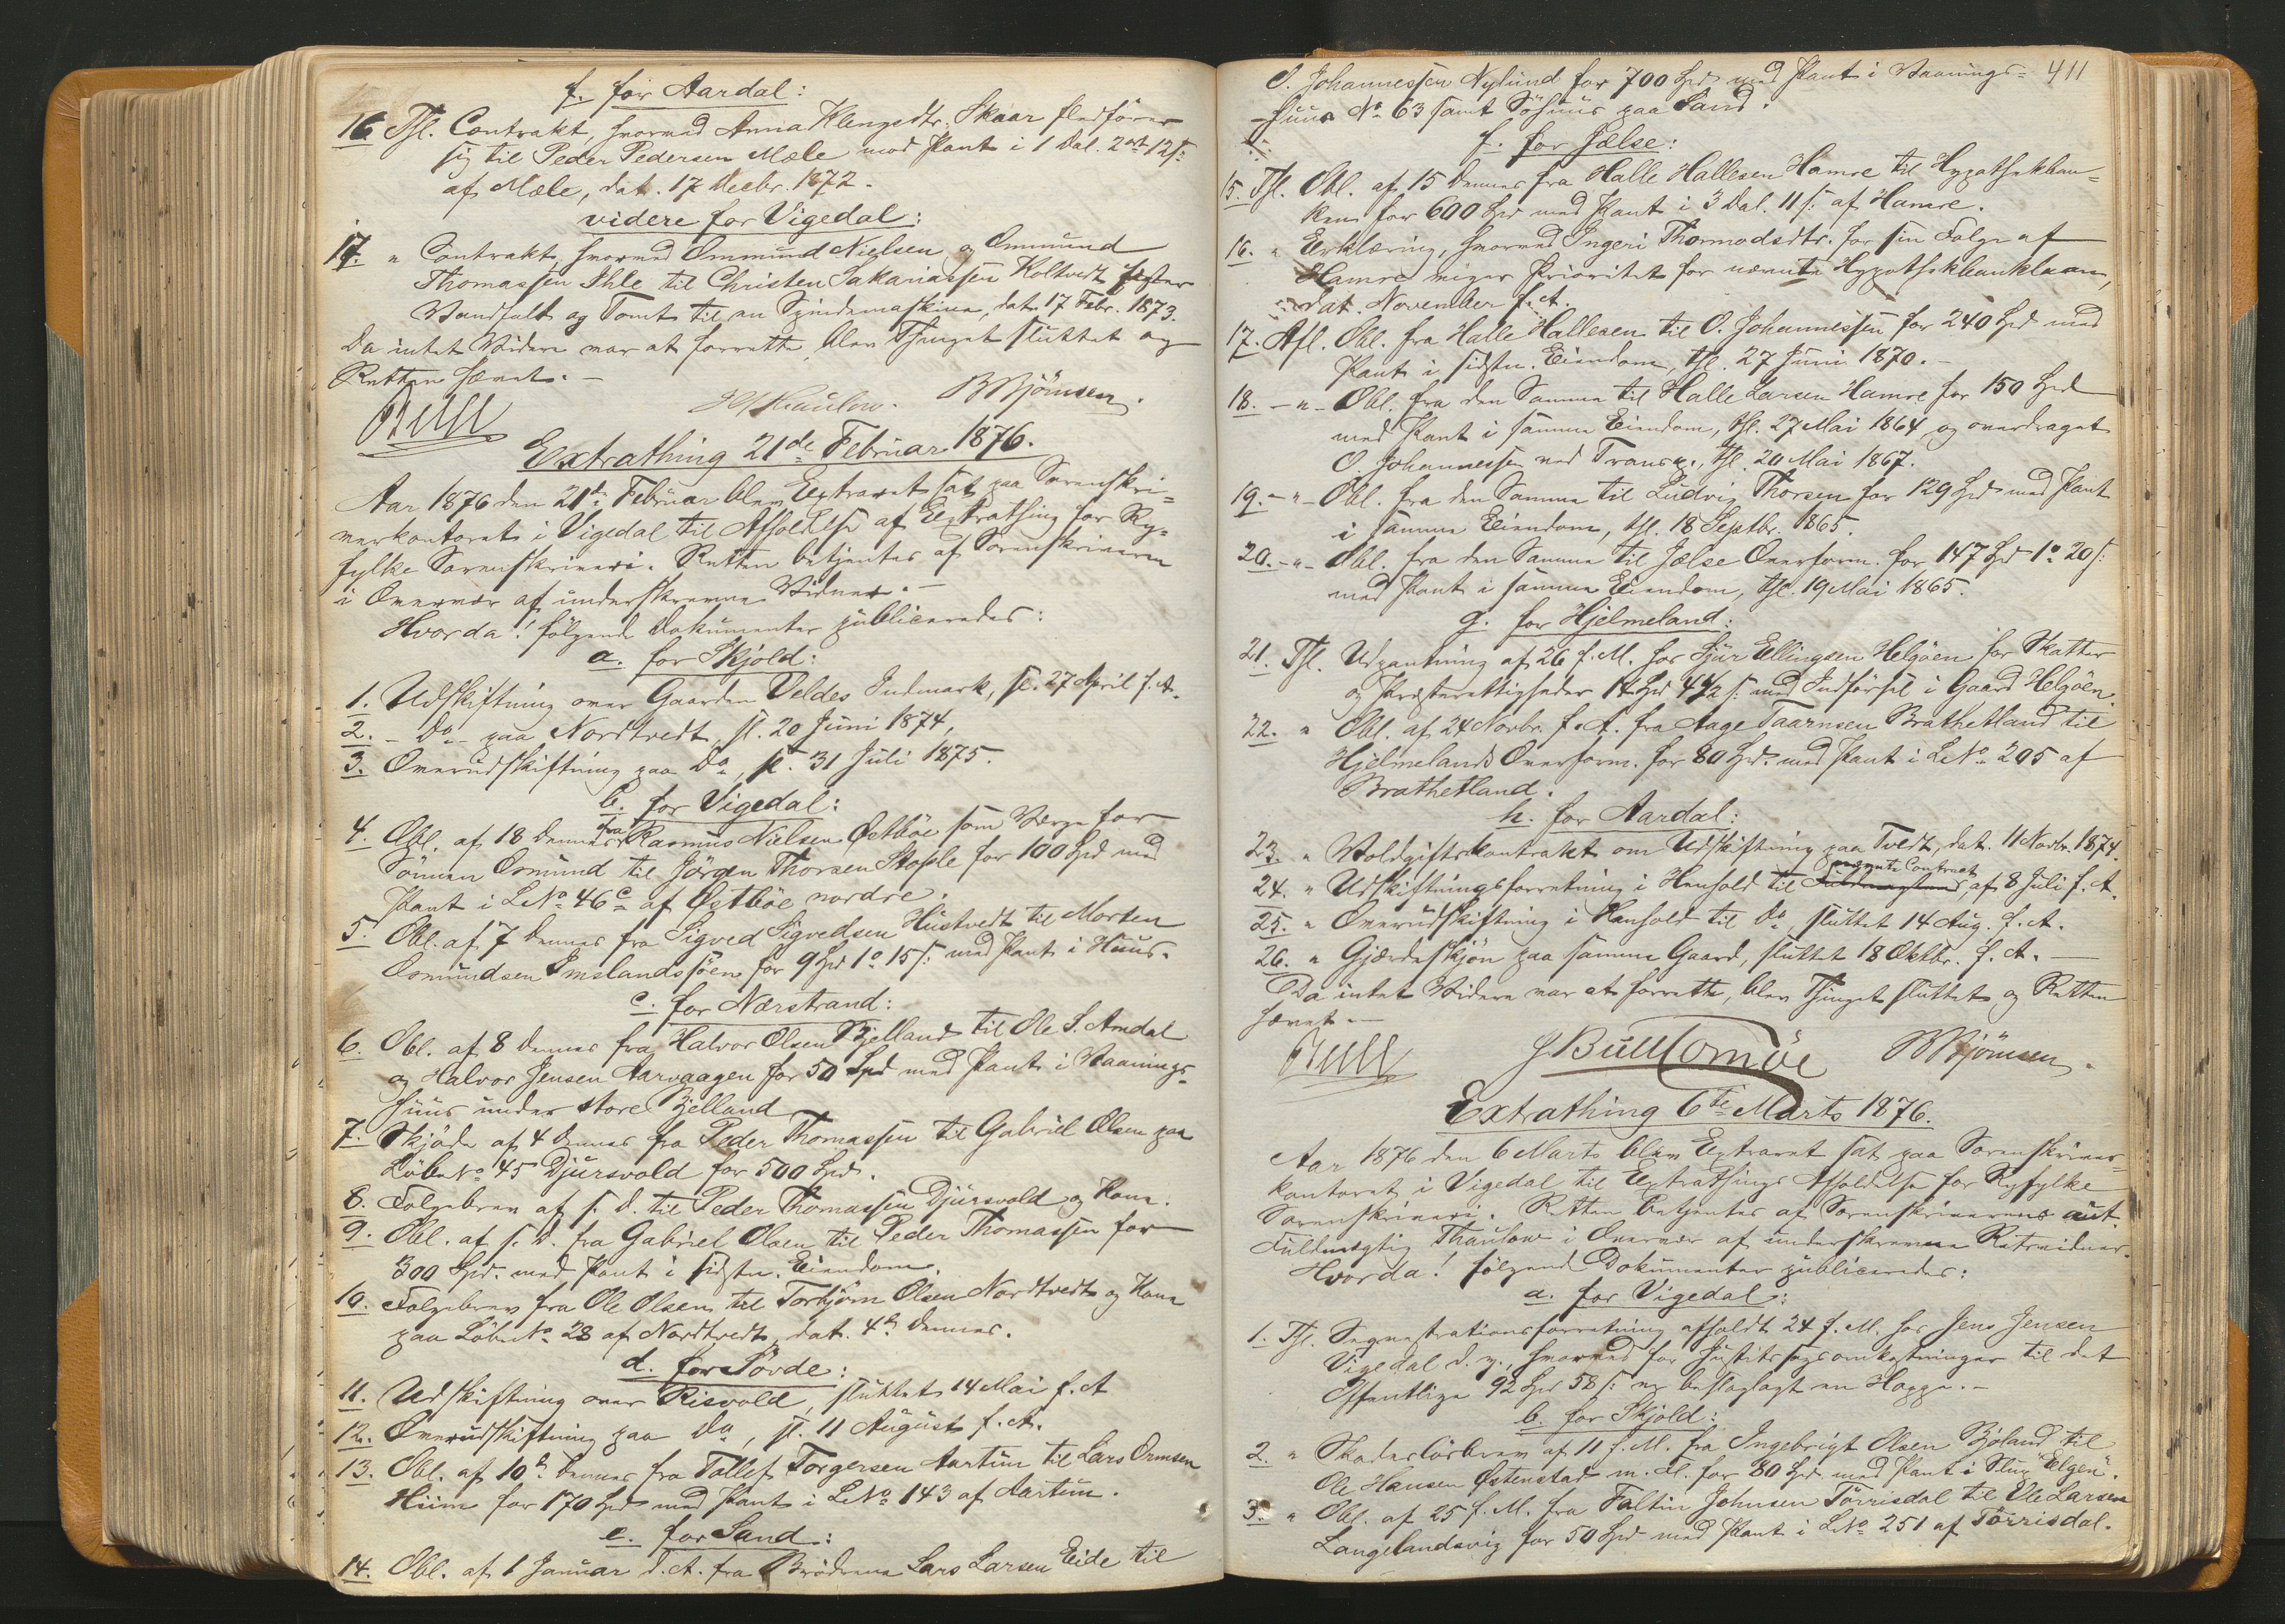 f. for Aardal:
16. Thl. Contrakt, hvorved Anna Klengsdtr. Skaar fledfører
sig til Peder Pedersen Mæle mod Pant i 1 Dal. 2 ort 12 s:
af Mæle, dat. 17 Decbr. 1872.
videre for Vigedal:
17. " Contrakt, hvorved Ommund Nielsen og Ommund
Thomassen Ihle til Christen Sakariassen Koltvedt fæster
Vandfald og Tomt til en Spindemaskine, dat. 17 Febr. 1873.
Da intet Videre var at forrette blev Thinget sluttet og
Retten hævet. –
Bull
H Thaulow. B Bjørnsen.
Extrathing 21de Februar 1876.
Aar 1876 den 21de Februar blev Extraret sat paa Sorenskri=
verkontoret i Vigedal til Afholdelse af Extrathing for Ry=
fylke Sorenskriveri. Retten betjentes af Sorenskriveren
i Overvær af underskrevne Vidner. –
Hvorda! følgende Dokumenter publiceredes:
a. for Skjold:
1. Udskiftning over Gaarden Veldes Indmark, sl. 27 April f. A.
2. – Do – paa Nordtvedt, sl. 20 Juni 1874,
3. Overudskiftning paa Do, sl. 31 Juli 1875.
b. for Vigedal:
4. Obl. af 18 dennes fra Rasmus Nielsen Østbøe som Værge for
Sønnen Osmund til Jørgen Thorsen Stople for 100 Spd med
Pant i L No 46 c af Østbøe nordre.
5. Obl. af 7 dennes fra Sigved Sigvedsen Hustvedt til Morten
Osmundsen Imslandssjøen for 9 Spd 1 o 15 s: med Pant i Huus.
c. for Nærstrand:
6. Obl. af 8 dennes fra Halvor Olsen Bjelland til Ole S. Amdal
og Halvor Jensen Aarvaagen for 50 Spd med Pant i Vaanings=
huus under store Bjelland
7. Skjøde af 4 dennes fra Peder Thomassen til Gabriel Olsen paa
Løbe No 45 Djursvold for 500 Spd.
8. Folgebrev af s. D. til Peder Thomassen Djursvold og Kone.
9. Obl. af s. D. fra Gabriel Olsen til Peder Thomassen for
300 Spd. med Pant i sidstn. Eiendom.
10. Folgebrev fra Ole Olsen til Torbjørn Olsen Nordtvedt og Kone
paa Løbe No 28 af Nordtvedt, dat. 4de dennes.
d. for Søvde:
11. Udskiftning over Risvold, sluttet 14 Mai f. A
12. Overudskiftning paa Do, sl. 11 August f. A.
13. Obl. af 10de dennes fra Tollef Torgersen Aartun til Lars Ormsen
Hiim for 170 Spd med Pant i L No 143 af Aartun.
e. for Sand:
14. Obl. af 1 Januar d. A. fra Brødrene Lars Larsen Eide til
411
O. Johannessen Nylund for 700 Spd med Pant i Vaanings=
huus No 63 samt Søhuus paa Sand.
f. for Jælse:
15. Thl. Obl. af 15 dennes fra Halle Hallesen Hamre til Hypothekban=
ken for 600 Spd med Pant i 3 Dal. 11 s: af Hamre.
16. " Erklæring, hvorved Ingeri Thormodsdtr. for sin Folge af
Hamre viger Prioritet for nævnte Hypothekbanklaan,
dat. November f. A.
17. Afl. Obl. fra Halle Hallesen til O. Johannessen for 240 Spd med
Pant i sidstn. Eiendom, thl. 27 Juni 1870. –
18. – " – Obl. fra den Samme til Halle Larsen Hamre for 150 Spd
med Pant i samme Eiendom, thl. 27 Mai 1864 og overdraget
O. Johannessen ved Transp., thl. 20 Mai 1867.
19. – " – Obl. fra den Samme til Ludvig Thorsen for 129 Spd med Pant
i samme Eiendom, thl. 18 Septbr. 1865.
20. – " – Obl. fra den Samme til Jælse Overform. for 147 Spd 1 o 20 s:
med Pant i samme Eiendom, thl. 19 Mai 1865.
g. for Hjelmeland:
21. Thl. Udpantning af 26 f. M. hos Sjur Ellingsen Helgøen for Skatter
og Præsterettigheder 14 Spd 44 1/2 s: med Indførsel i Gaard Helgøen.
22. " Obl. af 24 Novbr. f. A. fra Aage Taarnsen Brathetland til
Hjelmelands Overform. for 80 Spd. med Pant i L No 205 af
Brathetland.
h. for Aardal:
23. " Voldgiftskontrakt om Udskiftning paa Tvedt, dat. 11 Novbr. 1874.
24. " Udskiftningsforretning i Henhold til nævnte Contract, af 8 Juli f. A.
25. " Overudskiftning i Henhold til Do, sluttet 14 Aug. f. A.
26. " Gjærdeskjøn paa samme Gaard, sluttet 18 Oktbr. f. A. –
Da intet Videre var at forrette, blev Thinget sluttet og Retten
hævet. –
Bull
J. Bull Tomøe B Bjørnsen.
Extrathing 6te Marts 1876.
Aar 1876 den 6 Marts blev Extraret sat paa Sorenskriver=
kontoret i Vigedal til Extrathings Afholdelse for Ryfylke
Sorenskriveri. Retten betjentes af Sorenskriverens aut.
Fuldmægtig Thaulow i Overvær af underskrevne Retsvidner.
Hvorda! følgende Dokumenter publiceredes:
a. for Vigedal:
1. Thl. Seqvestrationsforretning afholdt 24 f. M. hos Jens Jensen
Vigedal d. y., hvorved for Justitssagsomkostninger til det
Offentlige 92 Spd 58 s: er beslaglagt en Hoppe. –
b. for Skjold:
2. " Skadesløsbrev af 11 f. M. fra Ingebrigt Olsen Bjoland til
Ole Hansen Østenstad m. Fl. for 80 Spd med Pant i Slup "Elgen".
3. " Obl. af 25 f. M. fra Faltin Johnsen Tørrisdal til Ole Larsen
Langelandsvig for 50 Spd med Pant i L No 251 af Tørrisdal.